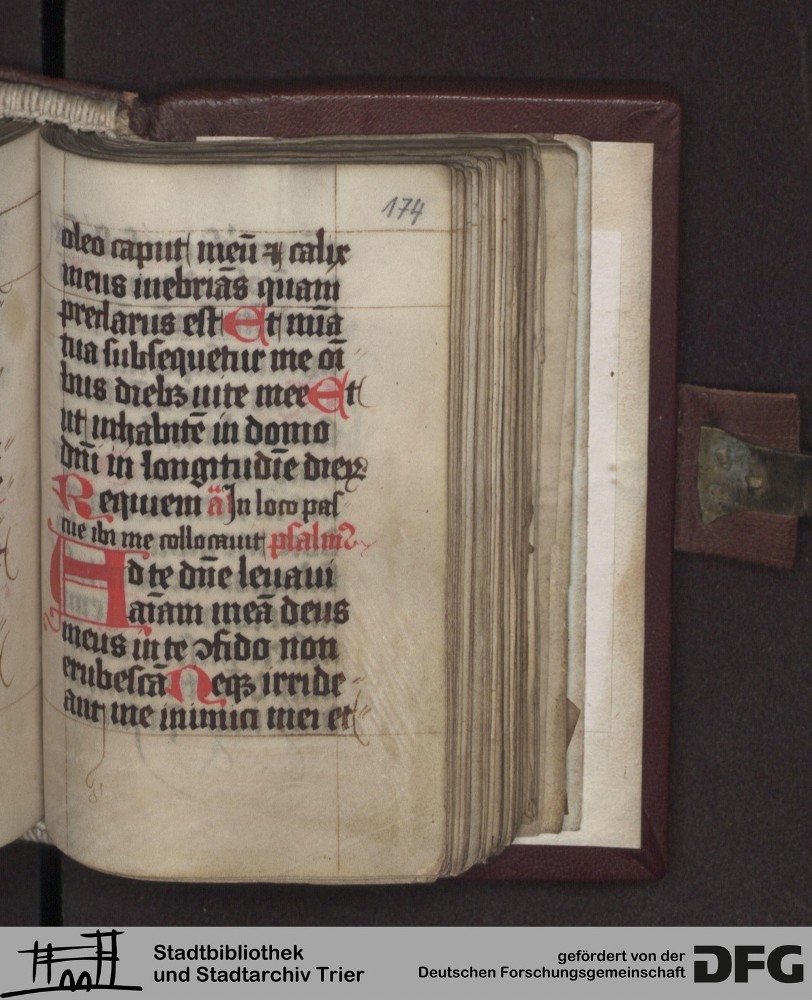 174
oleo caput meū ⁊ calix
meus inebriās quam
preclarus est Et mīa
tua subsequetur me oī
bus diebꝫ uite mee Et
ut inhabitē in domo
dn̄i in longitudīe dieꝝ
Requiem ā In loco pas
cue ibi me collocauit psalmꝰ
Ad te dn̄e leuaui
aīam meā deus
meus in te ꝯfido non
erubescā Neqꝫ irride
ant me inimici mei et
Stadtbibliothek
und Stadtarchiv Trier
gefördert von der
Deutschen Forschungsgemeinschaft
DFG